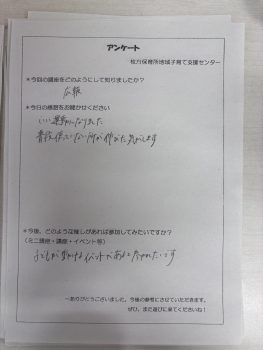 アンケート
枚方保育所地域子育て支援センター
＊今回の講座をどのようにして知りましたか？
広報
＊今日の感想をお聞かせください
いい運動になりました
普段使っていない所が伸びた気がします
＊今後、どのような催しがあれば参加してみたいですか？
（ミニ講座・講座・イベント等）
子どもが
イベントがあれば参加したいです
～ありがとうございました。今後の参考にさせていただきます。
ぜひ、また遊びに来てくださいね！